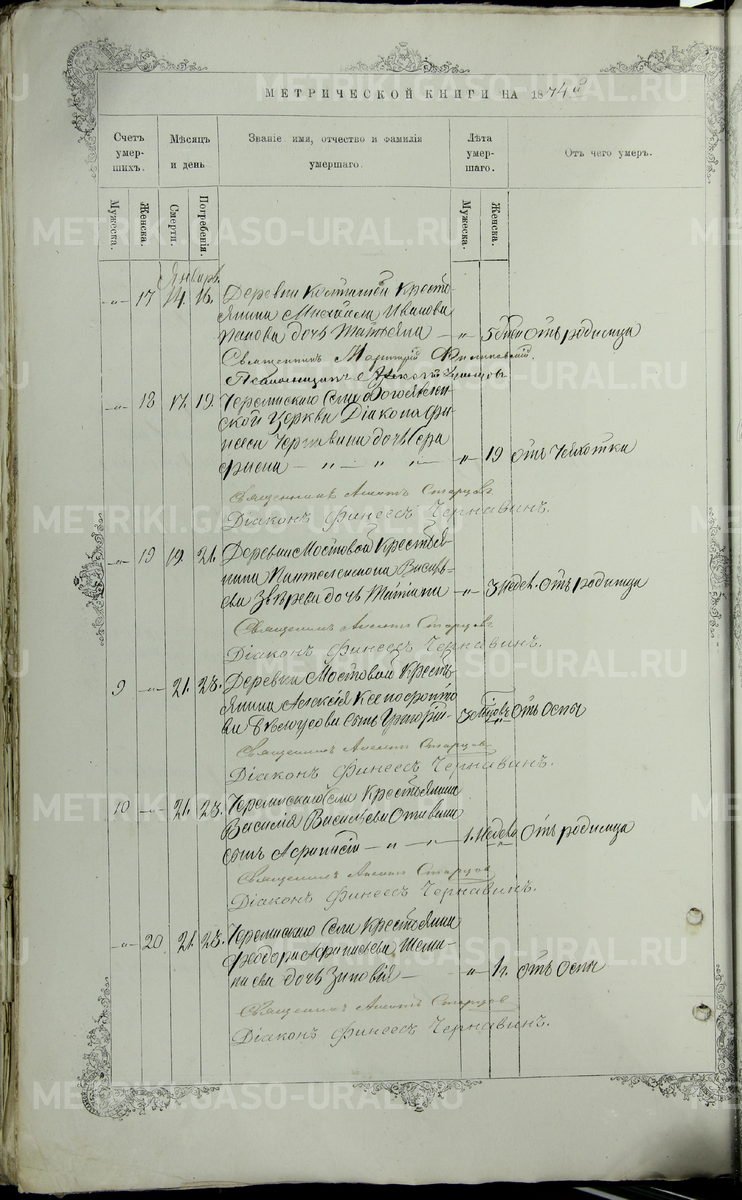 МЕТРИЧЕСКОЙ КНИГИ НА 1874й
Счетъ умер- шихъ.
Мѣсяцъ и день.
Званіе имя, отчество и фамилія умершаго.
Лѣта умер- шаго.
Отъ чего умеръ.
Мужеска.
Женска.
Смерти.
Погребенія.
Мужеска.
Женска.
Январь.
-„- 17 14. 16. Деревни Крестья
янина Михаила Иванова
Панова дочь Татьяна — „ 5 отъ родимца
Священникъ
Псаломщикъ
-„- 18 17. 19. Черемисскаго Села Богоявлен-
ской Церкви Діакона Фи-
нееса Чернавина дочь Сера
фима — „ — „ „ — „ 19 отъ Чахотки
Священникъ Старцовъ
Діаконъ Финеесъ Чернавинъ.
-„- 19 19. 21. Деревни Мостовой Крестья-
нина Пантелеимона Василь-
ева Звѣрева дочь Татіана -„- 3 недѣ. отъ родимца
Священникъ Старцовъ
Діаконъ Финеесъ Чернавинъ.
9 -„- 21. 23. Деревни Мостовой Кресть-
янина Алексія Ксенофонто
ва Бѣлоусова сынъ Григорій- 3 отъ Оспы
Священникъ Старцовъ
Діаконъ Финеесъ Чернавинъ.
10 -„- 21. 23. Черемисскаго Села Крестьянина
Василія Васильева
сынъ Афанасій — „ — „ 1. Недѣ. Отъ родимца
Священникъ Старцовъ
Діаконъ Финеесъ Чернавинъ.
-„- 20 21. 23. Черемисскаго Села Крестьянина
Феодора Афанасьева
дочь Зиновія — „ 1 г. отъ Оспы
Священникъ Старцовъ
Діаконъ Финеесъ Чернавинъ.
METRIKI.GASO-URAL.RU